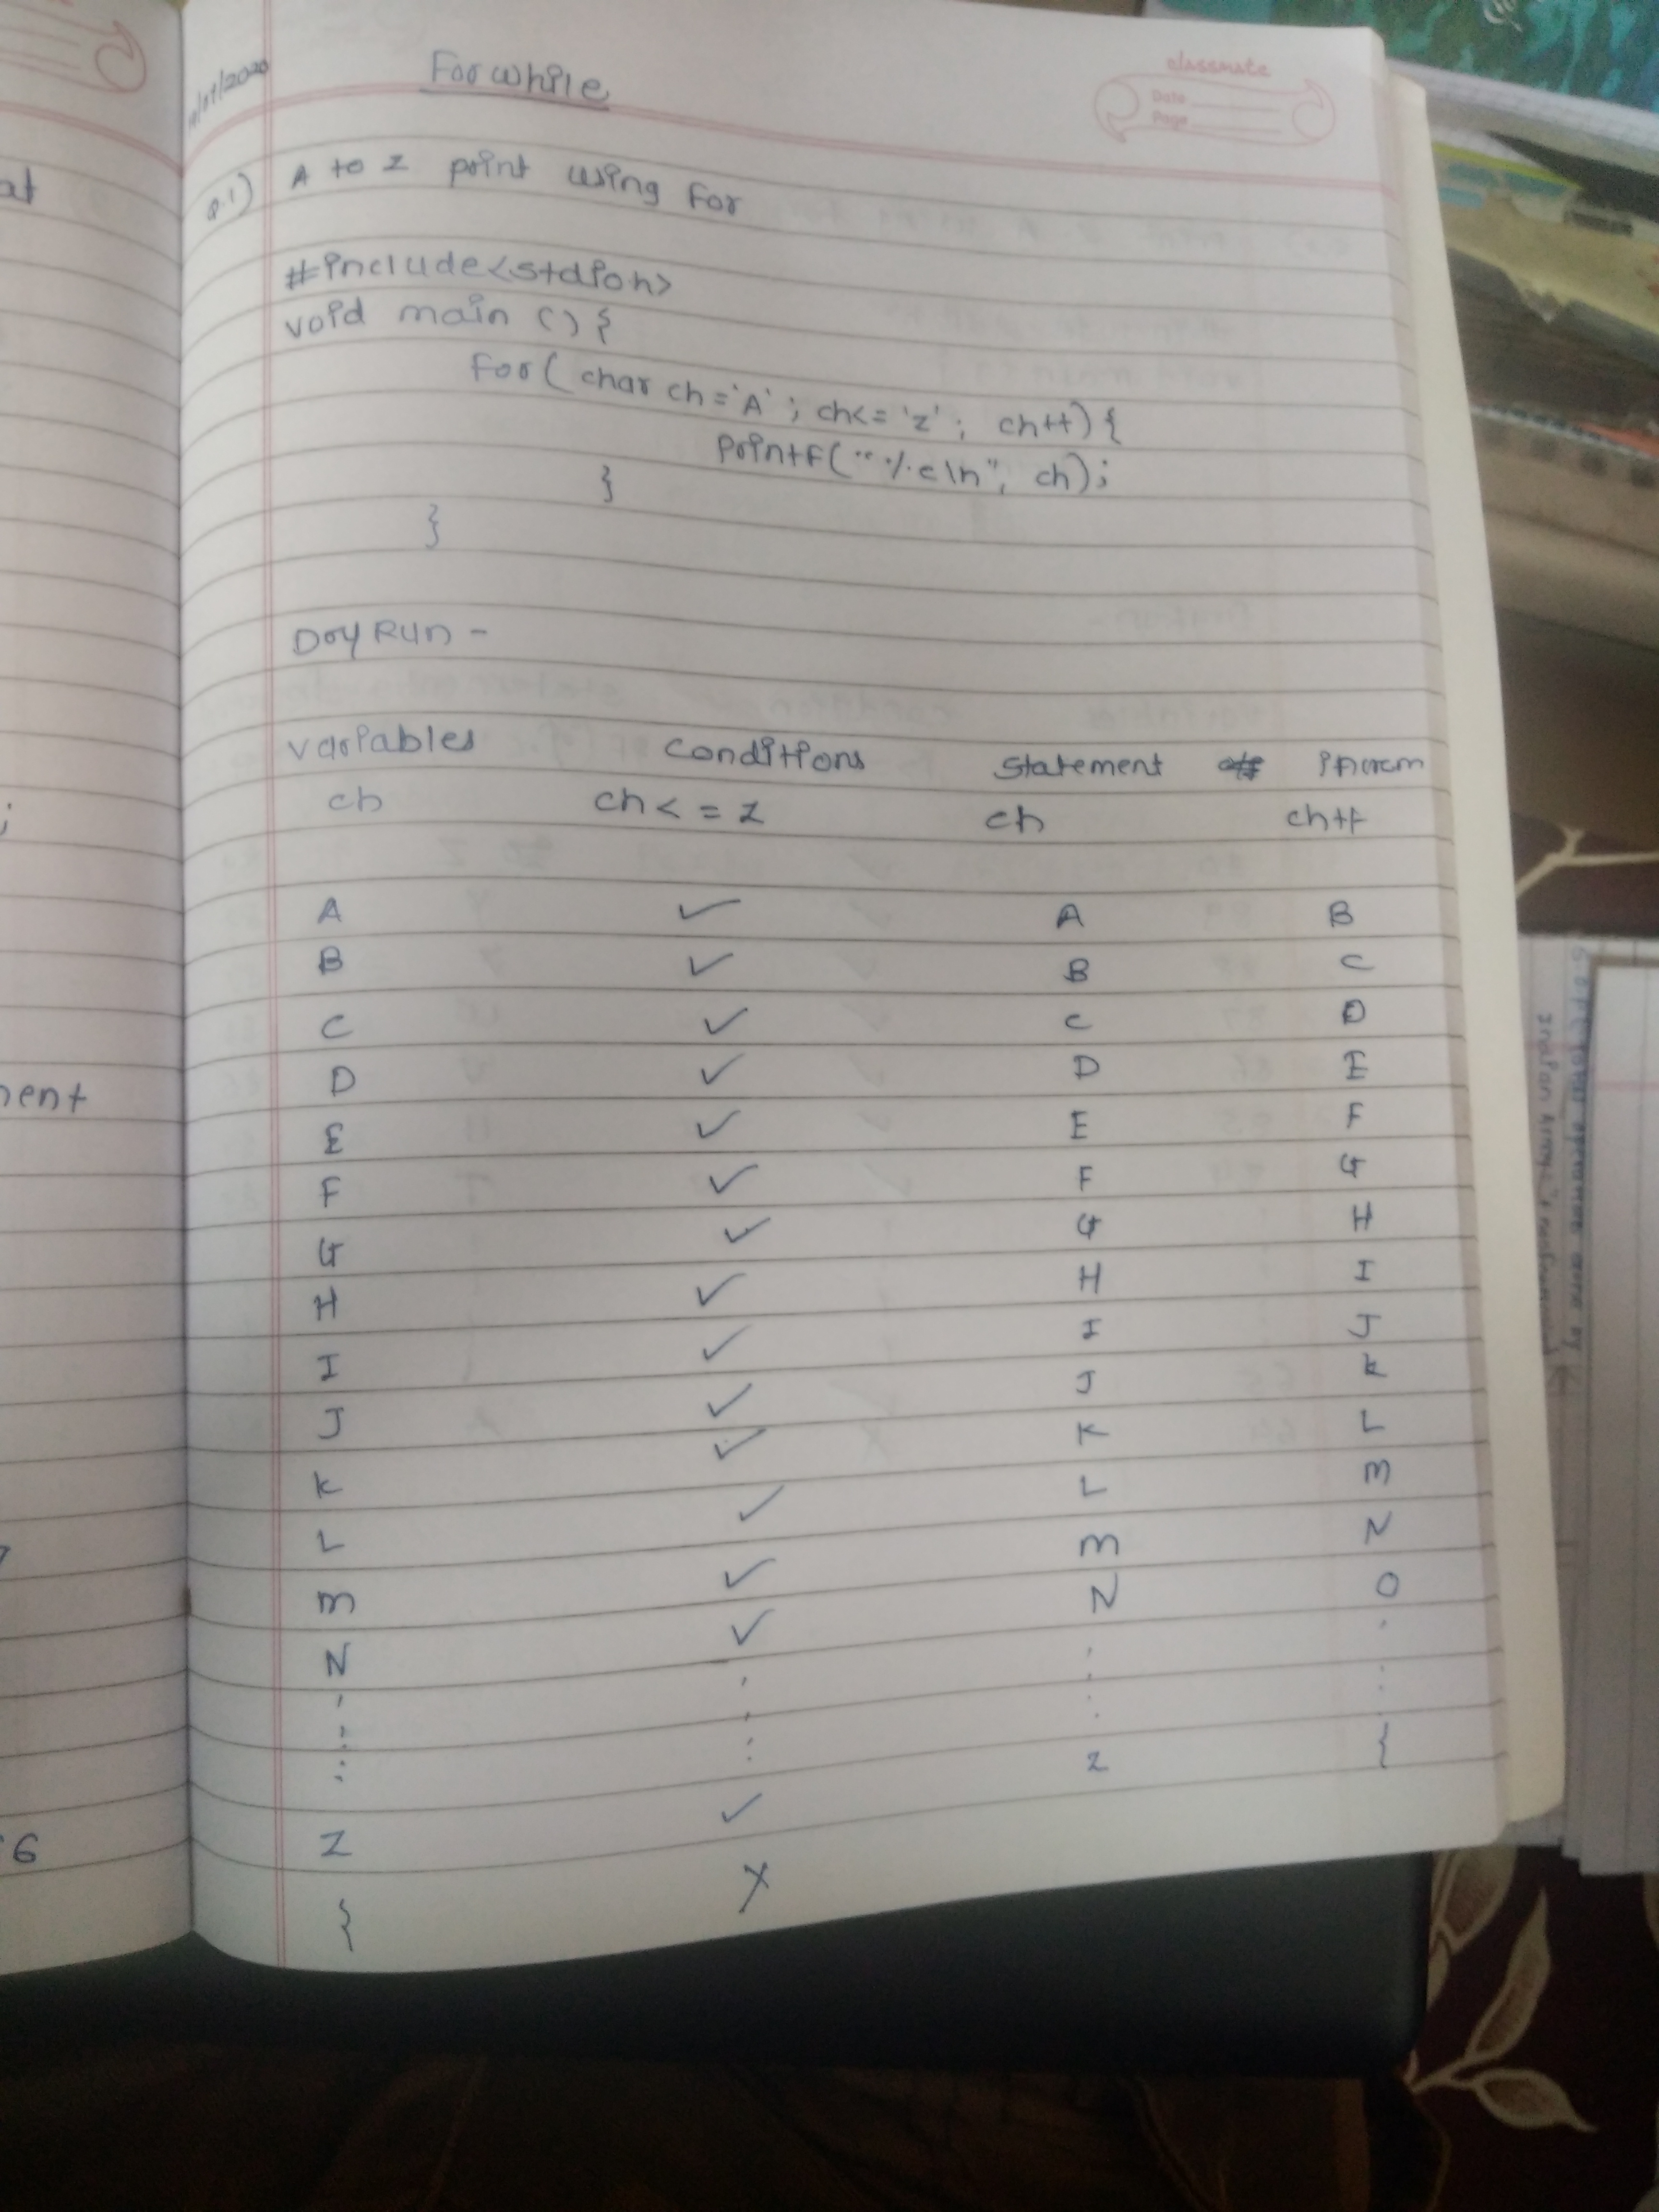 For while
classmate
Date
Page
Q.1) A to Z print using for
#include<stdioh>
void main () {
for( char ch='A' ; ch<= 'z' ; ch++) {
printf("%c\n", ch);
}
}
Dry Run -
variables conditions statement
ch ch<=z ch ch++
A ✓ A B
B ✓ B C
C ✓ C D
D ✓ D E
E ✓ E F
F ✓ F G
G ✓ G H
H ✓ H I
I ✓ I J
J ✓ J K
K ✓ K L
L ✓ L M
M ✓ M N
N ✓ N O
Z ✓ z {
{ X
at
;
ment
6